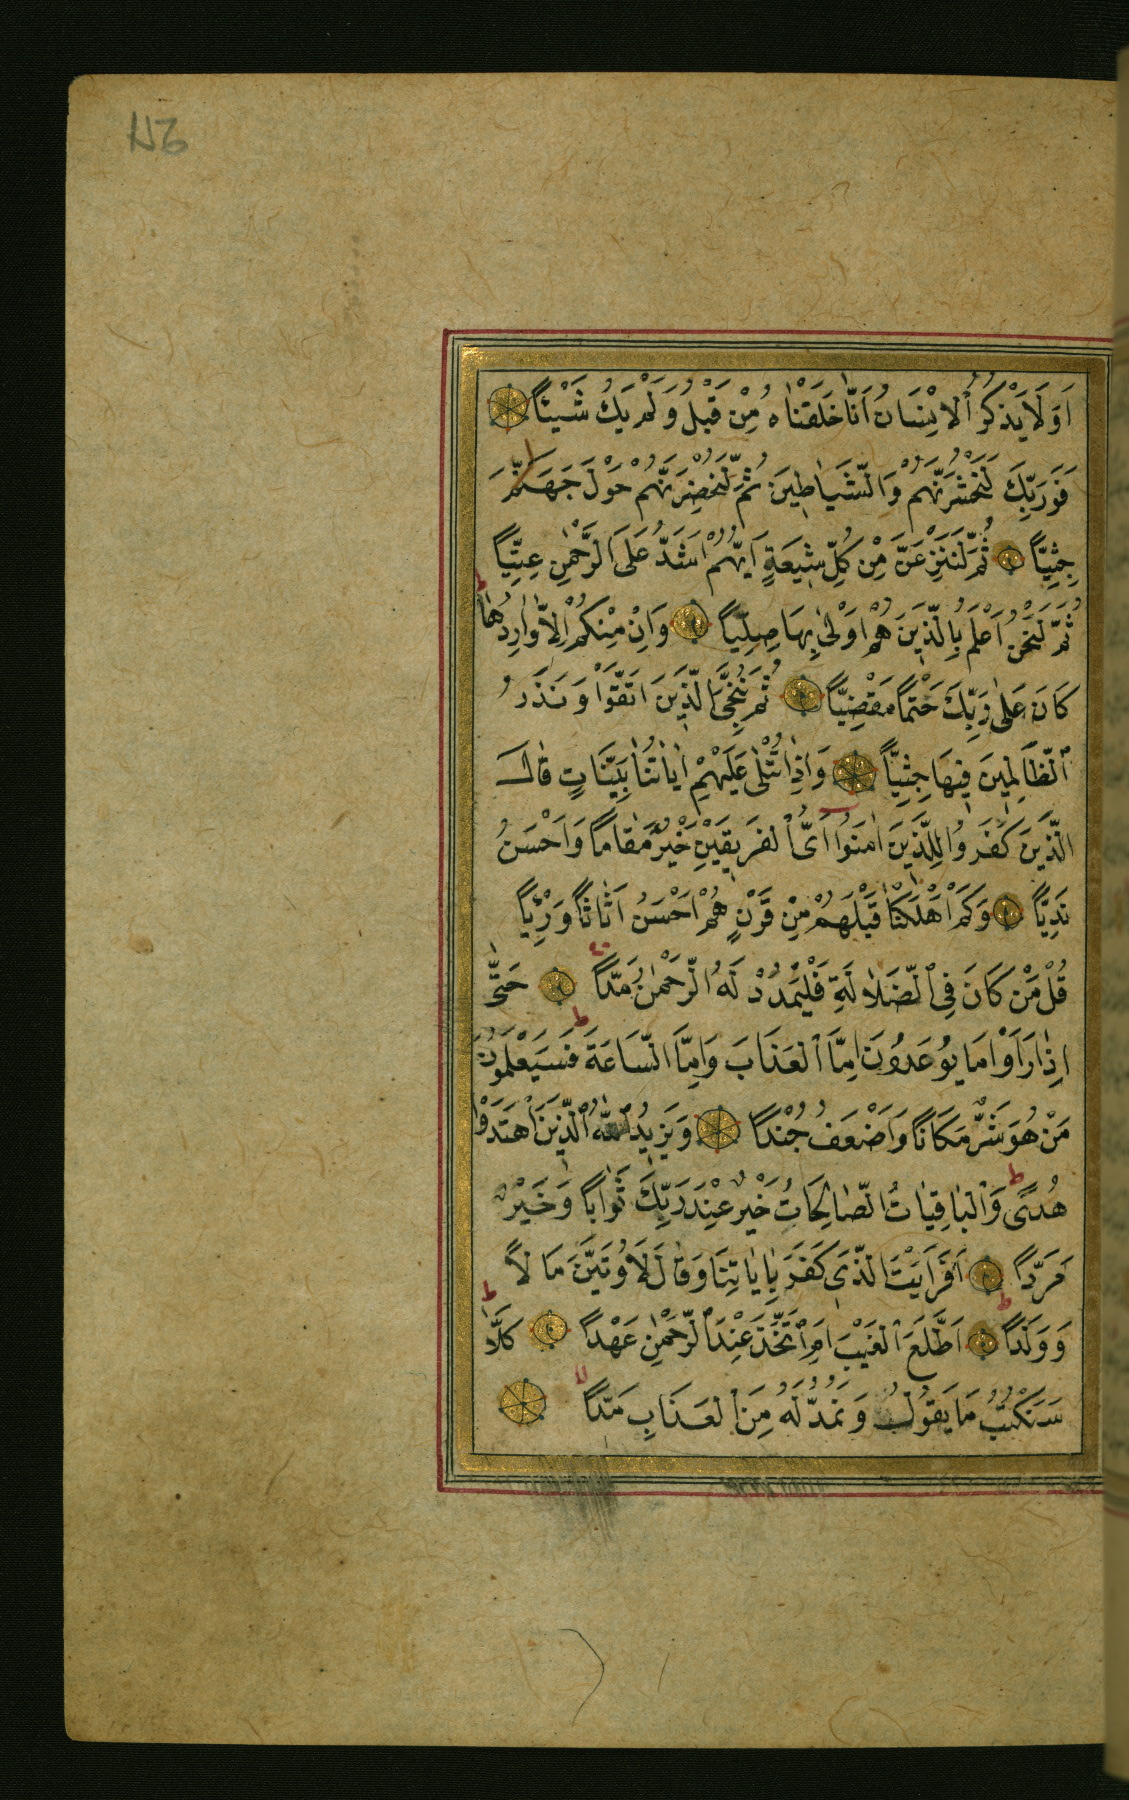 اَوَلَا يَذْكُرُ الْاِنْسَانُ اَنَّا خَلَقْنَاهُ مِنْ قَبْلُ وَلَمْ يَكُ شَيْئًا
فَوَرَبِّكَ لَنَحْشُرَنَّهُمْ وَالشَّيَاطِينَ ثُمَّ لَنُحْضِرَنَّهُمْ حَوْلَ جَهَنَّمَ
جِثِيًّا ثُمَّ لَنَنْزِعَنَّ مِنْ كُلِّ شِيعَةٍ اَيُّهُمْ اَشَدُّ عَلَى الرَّحْمٰنِ عِتِيًّا
ثُمَّ لَنَحْنُ اَعْلَمُ بِالَّذِينَ هُمْ اَوْلٰى بِهَا صِلِيًّا وَاِنْ مِنْكُمْ اِلَّا وَارِدُهَا
كَانَ عَلٰى رَبِّكَ حَتْمًا مَقْضِيًّا ثُمَّ نُنَجِّي الَّذِينَ اتَّقَوْا وَنَذَرُ
الظَّالِمِينَ فِيهَا جِثِيًّا وَاِذَا تُتْلٰى عَلَيْهِمْ اٰيَاتُنَا بَيِّنَاتٍ قَالَ
الَّذِينَ كَفَرُوا لِلَّذِينَ اٰمَنُوا اَيُّ الْفَرِيقَيْنِ خَيْرٌ مَقَامًا وَاَحْسَنُ
نَدِيًّا وَكَمْ اَهْلَكْنَا قَبْلَهُمْ مِنْ قَرْنٍ هُمْ اَحْسَنُ اَثَاثًا وَرِئْيًا
قُلْ مَنْ كَانَ فِي الضَّلَالَةِ فَلْيَمْدُدْ لَهُ الرَّحْمٰنُ مَدًّا حَتّٰى
اِذَا رَاَوْا مَا يُوعَدُونَ اِمَّا الْعَذَابَ وَاِمَّا السَّاعَةَ فَسَيَعْلَمُونَ
مَنْ هُوَ شَرٌّ مَكَانًا وَاَضْعَفُ جُنْدًا وَيَزِيدُ اللّٰهُ الَّذِينَ اهْتَدَوْا
هُدًى وَالْبَاقِيَاتُ الصَّالِحَاتُ خَيْرٌ عِنْدَ رَبِّكَ ثَوَابًا وَخَيْرٌ
مَرَدًّا اَفَرَاَيْتَ الَّذِي كَفَرَ بِاٰيَاتِنَا وَقَالَ لَاُوتَيَنَّ مَالًا
وَوَلَدًا اَطَّلَعَ الْغَيْبَ اَمِ اتَّخَذَ عِنْدَ الرَّحْمٰنِ عَهْدًا كَلَّا
سَنَكْتُبُ مَا يَقُولُ وَنَمُدُّ لَهُ مِنَ الْعَذَابِ مَدًّا